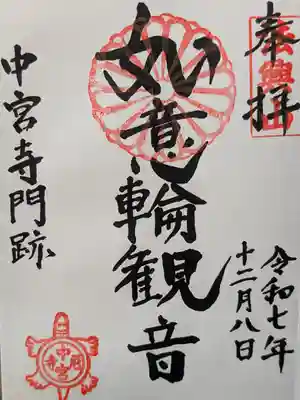 奉拝
令和七年
十二月八日
如意輪観音
中宮寺門跡
中宮
尼寺